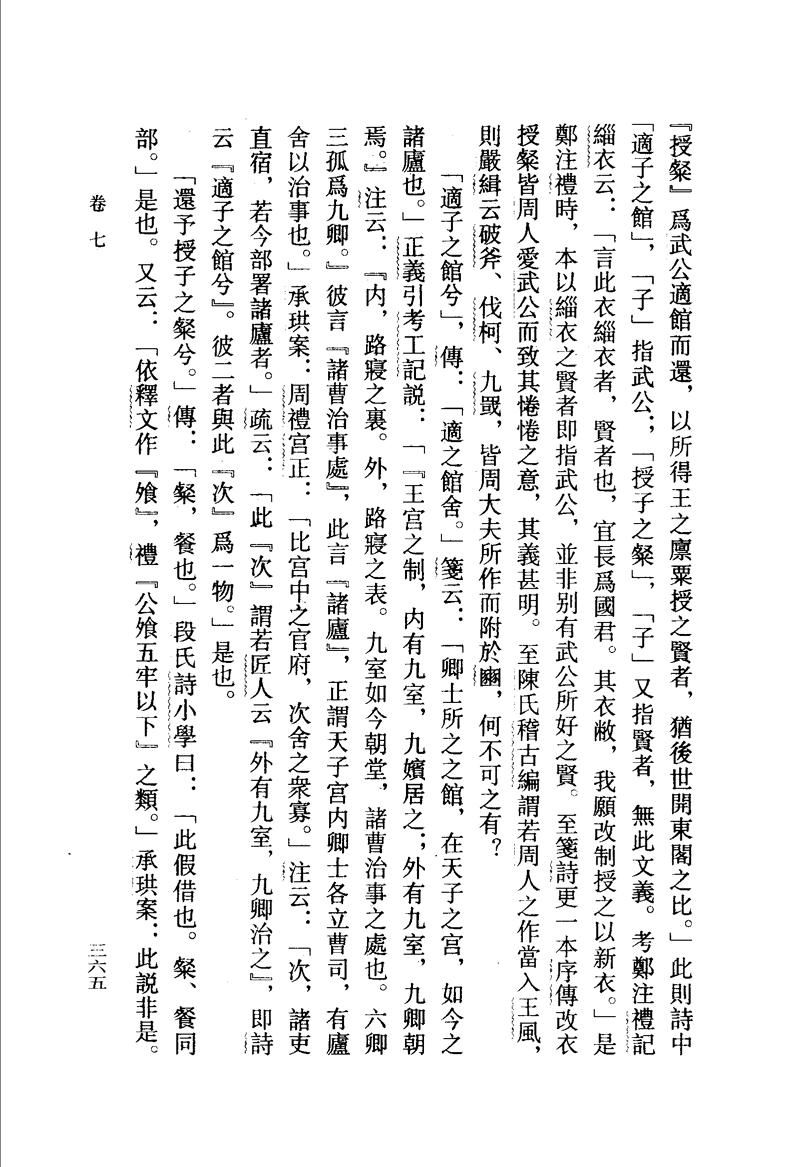 『授粲』爲武公適館而還，以所得王之廩粟授之賢者，猶後世開東閣之比。」此則詩中
「適子之館」，「子」指武公；「授子之粲」，「子」又指賢者，無此文義。考鄭注禮記
緇衣云：「言此衣緇衣者，賢者也，宜長爲國君。其衣敝，我願改制授之以新衣。」是
鄭注禮時，本以緇衣之賢者即指武公，並非別有武公所好之賢。至箋詩更一本序傳改衣
授粲皆周人愛武公而致其惓惓之意，其義甚明。至陳氏稽古編謂若周人之作當入王風，
則嚴緝云破斧、伐柯、九罭，皆周大夫所作而附於豳，何不可之有？
「適子之館兮」，傳：「適之館舍。」箋云：「卿士所之之館，在天子之宮，如今之
諸廬也。」正義引考工記説：「『王宮之制，内有九室，九嬪居之；外有九室，九卿朝
焉。』注云：『内，路寢之裏。外，路寢之表。九室如今朝堂，諸曹治事之處也。六卿
三孤爲九卿。』彼言『諸曹治事處』，此言『諸廬』，正謂天子宮内卿士各立曹司，有廬
舍以治事也。」承珙案：周禮宮正：「比宮中之官府，次舍之衆寡。」注云：「次，諸吏
直宿，若今部署諸廬者。」疏云：「此『次』謂若匠人云『外有九室，九卿治之』，即詩
云『適子之館兮』。彼二者與此『次』爲一物。」是也。
「還予授子之粲兮。」傳：「粲，餐也。」段氏詩小學曰：「此假借也。粲、餐同
部。」是也。又云：「依釋文作『飧』，禮『公飧五牢以下』之類。」承珙案：此説非是。
卷七
三六五